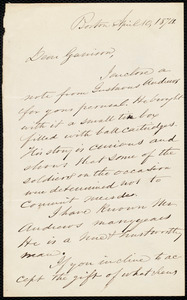 Boston April 10, 1870
Dear Garrison,
I enclose a
note from Leshons Andrews
for your perusal. He brought
with it a small tin box
filled with ball cartridges.
His story is curious and
shows that some of the
soldiers on the occasion
was determined not to
commit murder.
I have known Mr
Andrews many years
He is a true & trustworthy
man.
If you incline to ac
cept the gift of what